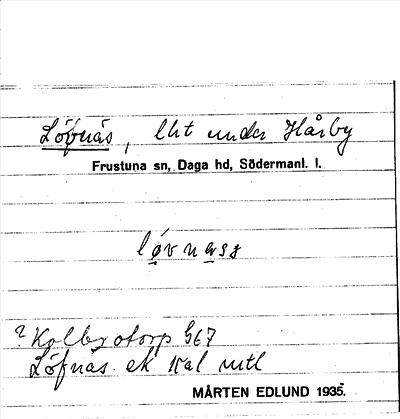 Löfnäs, lht under Hårby
Frustuna sn, Daga hd, Södermanl. l.
løvnasz
? Kolbyotorp G67
Löfnäs ek Kal mtl
MÅRTEN EDLUND 1935.